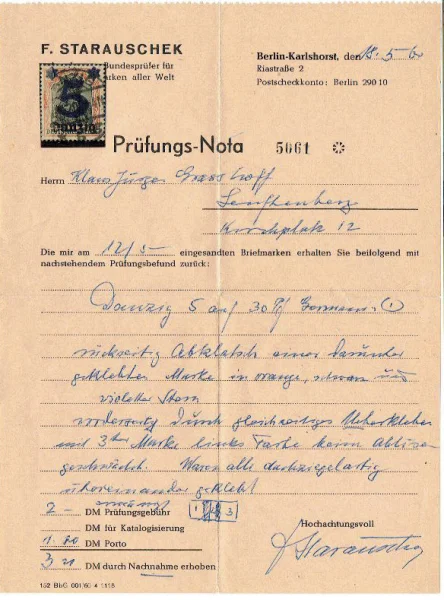 F. STARAUSCHEK
Bundesprüfer für
arken aller Welt
5
Danzig
Berlin-Karlshorst, den 18. 5. 60
Riastraße 2
Postscheckkonto: Berlin 290 10
Prüfungs-Nota 5061
Herrn Klaus Jürgen
Senftenberg
Kirchplatz 12
Die mir am 12/5 eingesandten Briefmarken erhalten Sie beifolgend mit
nachstehendem Prüfungsbefund zurück:
Danzig 5 auf 30 Pf Germania (1)
rückseitig Abklatsch einer darunter
geklebten Marke in orange, schwarz und
violetter Stern
vorderseitig durch gleichzeitiges Überkleben
mit 3ter Marke links Farbe beim Ablösen
geschwächt. Waren alle dachziegelartig
übereinander geklebt
2 - DM Prüfungsgebühr 1 3
DM für Katalogisierung
DM Porto
DM durch Nachnahme erhoben
Hochachtungsvoll
F Starauschek